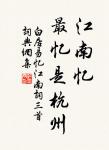 江南忆
最忆是杭州
白居易忆江南词三首
词典网集